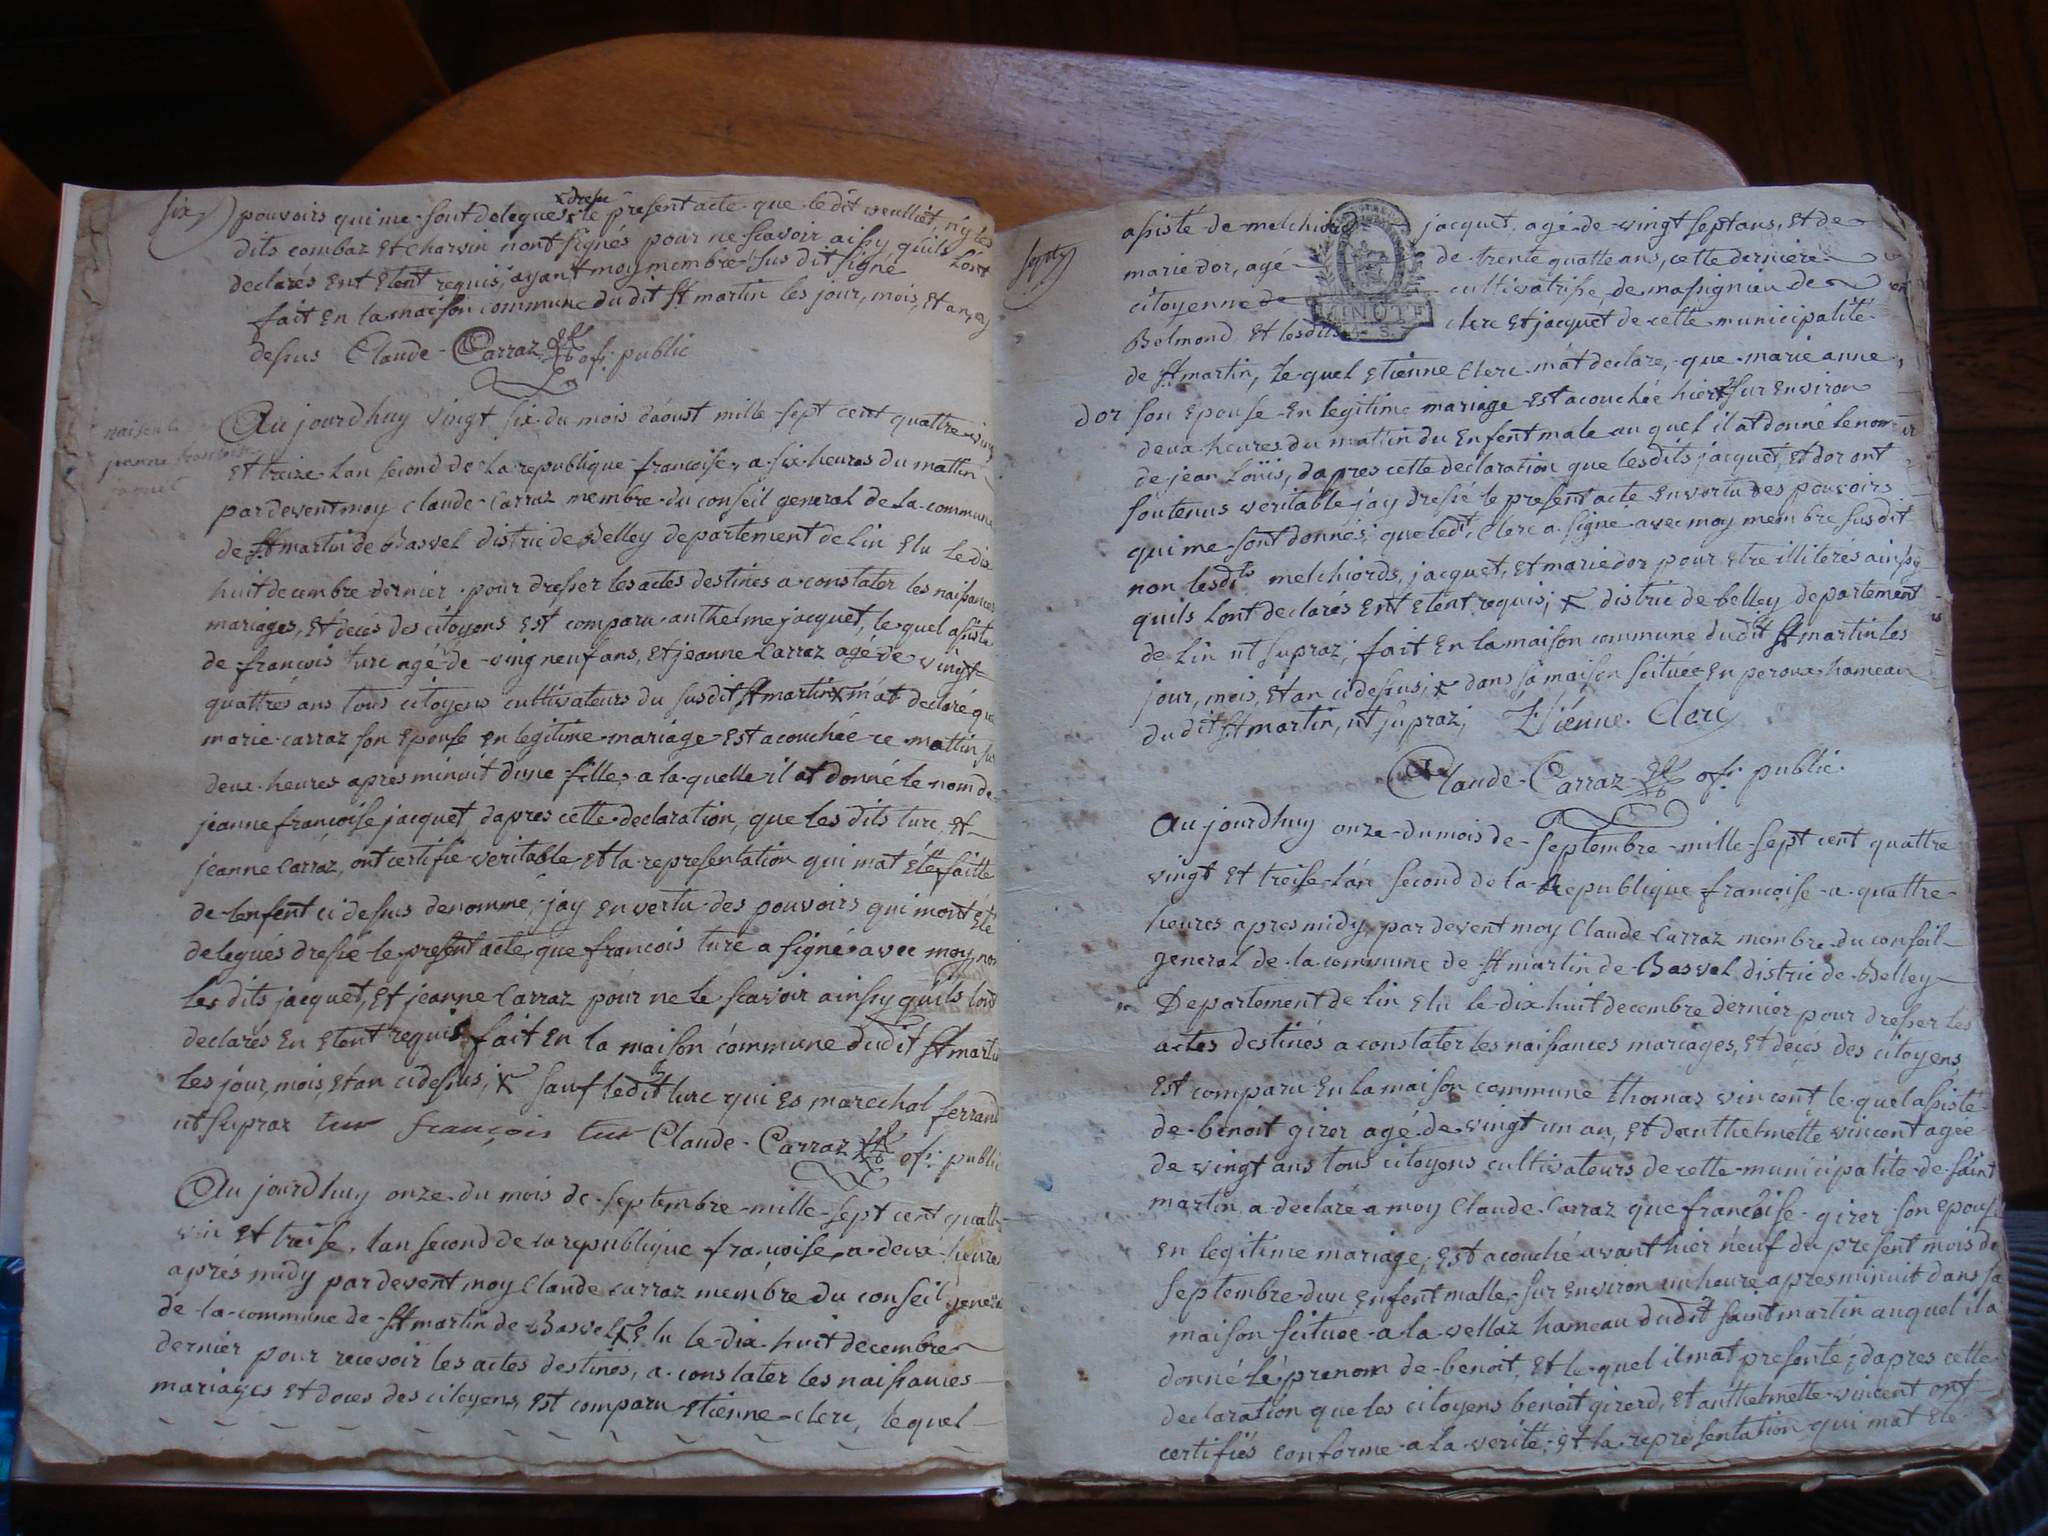 six
pouvoirs qui me sont delegués dresse le present acte que le dit veulliet, n'y les
dits combaz et Charvin n'ont signés pour ne scavoir aissy quils lont
declarés ent etent requis, ayant moy membre sus dit signé
fait en la maison commune du dit st martin les jour, mois, et an, cy
dessus Claude Carraz ofr public
naisence
jeanne francoise
jaquet
Aujourdhuy vingt six du mois daoust mille sept cent quattre vingt
et treize lan second de la republique francoise, a six heures du mattin
pardevent moy Claude Carraz membre du conseil general de la commune
de st martin de Bavel distric de Belley departement de lin elu le dix
huit decembre dernier pour dresser les actes destines a constater les naissances
mariages, et deces des citoyens est comparu anthelme jacquet, le quel assisté
de francois turc agé de ving neuf ans, et jeanne Carraz agé de vingt
quattres ans tous citoyens cultivateurs du susdit st martin m'at declaré que
marie carraz son epouse en legitime mariage est acouchée ce mattin sur
deux heures apres minuit dune fille, a la quelle il at donné le nom de
jeanne francoise jacquet, dapres cette declaration, que les dits turc, et
jeanne Carraz, ont certifie veritable et la representation qui mat été faitte
de lenfent ci dessus denommé, jay en vertu des pouvoirs qui mont été
delegués dressé le present acte, que francois turc a signé avec moy, non
les dits jacquet, et jeanne Carraz pour ne le scavoir ainssy quils lont
declarés en etent requis fait en la maison commune dudit st martin
les jour, mois, et an cidessus; sauf ledit turc qui es marechal ferrand
ut supraz turc françois turc Claude Carraz ofr public
Aujourdhuy onze du mois de septembre mille sept cent quatre
vin et treise, lan second de la republique françoise, a deux heures
aprés midy pardevent moy Claude Carraz membre du conseil general
de la commune de st martin de Bavel elu le dix huit decembre
dernier pour recevoir les actes destinés, a constater les naissances
mariages et deces des citoyens, est comparu etienne clerc, le quel
septz
assisté de melchiord jacquet, agé de vingt sept ans, et de
marie dor, agé de trente quatte ans, cette derniere
citoyenne de cultivatrisse, de massignieu de
Belmond et lesdits clerc et jacquet de cette municipalité
MINUTE
de st martin, le quel etienne Clerc m'at declare, que marie anne
dor son epouse en legitime mariage est acouchée hier sur environ
deux heures du mattin du enfent male au quel il at donné le nom
de jean Loüis, dapres cette declaration que lesdits jacquet, et dor ont
soutenus veritable j'ay dressé le present acte en vertu des pouvoirs
qui me sont donnés, que ledt. Clerc a signé avec moy membre susdit
non lesdts melchiords, jacquet, et marie dor pour etre illiterés ainssy
quils lont declarés ent etent requis; distric de belley departement
de lin ut supraz; fait en la maison commune dudit st martin les
jour, mois, et an cidessus; dans sa maison scituée en peroux hameau
du dit st martin, ut supraz; Etiénne Clerc
Claude Carraz ofr public
Aujourdhuy onze du mois de septembre mille sept cent quattre
vingt et treise lan second de la Republique francoise a quattre
heures apres midy, pardevent moy Claude Carraz membre du conseil
general de la commune de st martin de Bavel, distric de Belley
Departement de lin elu le dix huit decembre dernier pour dresser les
actes destinés a constater les naissances mariages, et décés des citoyens,
est comparu en la maison commune thomas vincent le quel assisté
de benoit girer agé de vingt un an, et danthelmette vincent agée
de vingt ans tous citoyens cultivateurs de cette municipalité de saint
martin, a declaré a moy Claude Carraz que francoise girer son epouse
en legitime mariage, est acouché avant hier neuf du present mois de
septembre dun enfent malle, sur environ un heure apres minuit dans sa
maison scituee a la vellaz hameau dudit saint martin auquel il a
donné le prenom de benoit, et le quel il mat presenté; dapres cette
declaration que les citoyens benoit girerd, et anthelmette vincent ont
certifiés conforme a la verité, et la representation qui mat ete